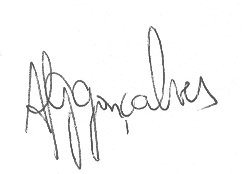 AGgonçalves